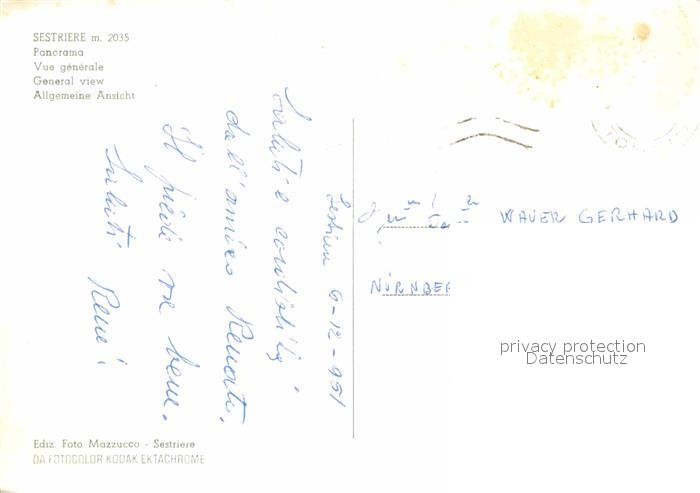 SESTRIERE m. 2035
Panorama
Vue générale
General view
Allgemeine Ansicht
Sestriere 6-12-951
Saluti e cordialità
dall'amico Renato.
Il piede va bene.
Saluti René!
WAUER GERHARD
NÜRNBER
privacy protection
Datenschutz
Ediz. Foto Mazzucco - Sestriere
DA FOTOCOLOR KODAK EKTACHROME